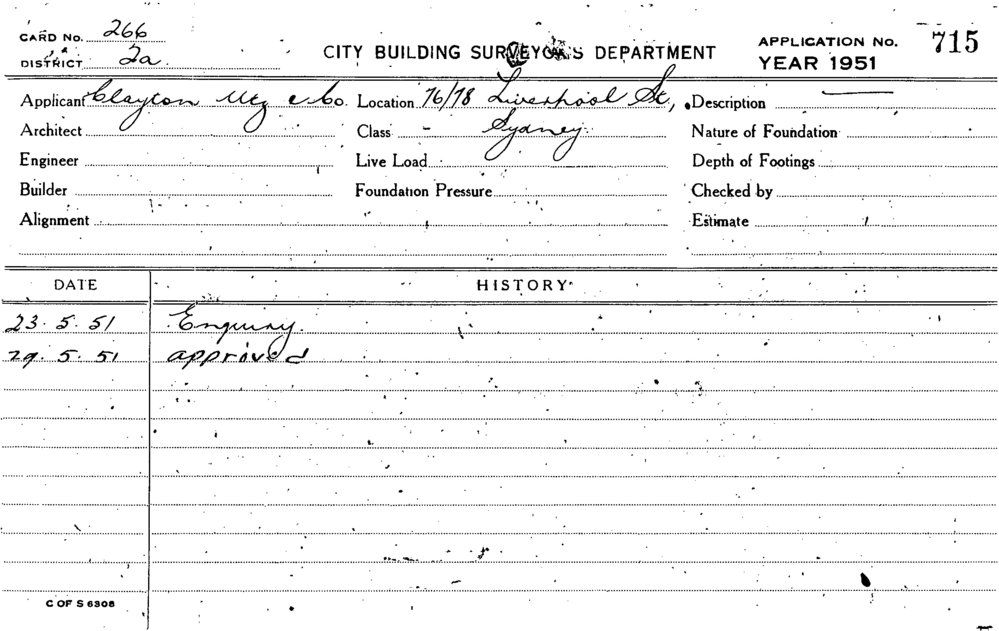 CARD No. 266
DISTRICT 2a
CITY BUILDING SURVEYOR'S DEPARTMENT
APPLICATION No. 715
YEAR 1951
Applicant Clayton Utz & Co. Location 76/78 Liverpool St., Description
Architect Class - Sydney. Nature of Foundation
Engineer Live Load Depth of Footings
Builder Foundation Pressure Checked by
Alignment Estimate
DATE HISTORY
23. 5. 51 Enquiry.
29. 5. 51 approved
C OF S 6308